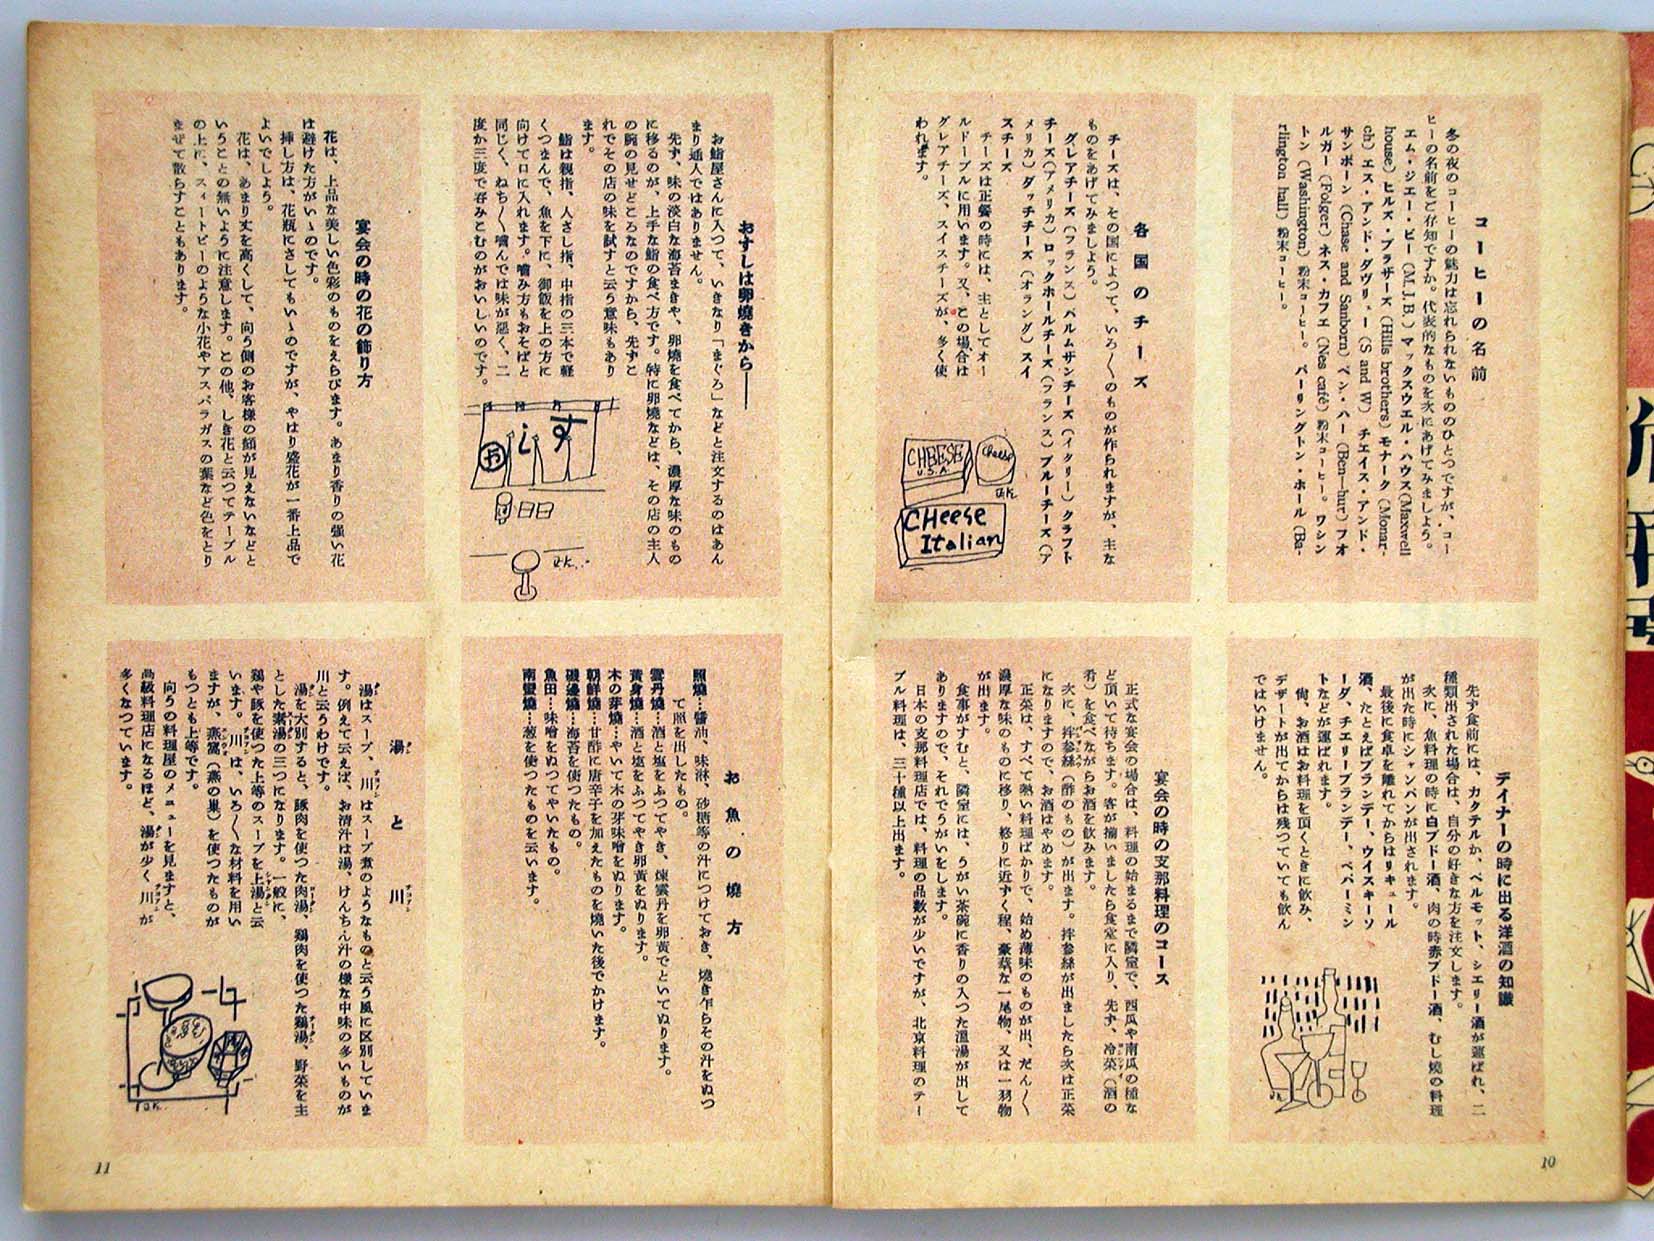 コーヒーの名前
冬の夜のコーヒーの魅力は忘れられないもののひとつですが、コー
ヒーの名前をご存知ですか。代表的なものを次にあげてみましよう。
エム・ジエー・ビー（M.J.B.）マックスウエル・ハウス(Maxwell
house) ヒルズ・ブラザーズ (Hills brothers) モナーク (Monar-
ch) エス・アンド・ダヴリュー (S and W) チエイス・アンド・
サンボーン (Chase and Sanborn) ベン・ハー (Ben-hur) フオ
ルガー (Folger) ネス・カフエ (Nes café) 粉末コーヒー。ワシン
トン (Washington) 粉末コーヒー。バーリングトン・ホール (Ba-
rlington hall) 粉末コーヒー。
各国のチーズ
チーズは、その国によつて、いろ〱のものが作られますが、主な
ものをあげてみましよう。
グレアチーズ（フランス）パルムザンチーズ（イタリー）クラフト
チーズ（アメリカ）ロックホールチーズ（フランス）ブルーチーズ（ア
メリカ）ダッチチーズ（オランダ）スイ
スチーズ
チーズは正餐の時には、主としてオー
ルドーブルに用います。又、この場合は
グレアチーズ、スイスチーズが、多く使
われます。
CHEESE
U.S.A.
Cheese
CHeese
Italian
デイナーの時に出る洋酒の知識
先ず食前には、カクテルか、ベルモット、シエリー酒が運ばれ、二
種類出された場合は、自分の好きな方を注文します。
次に、魚料理の時に白ブドー酒、肉の時赤ブドー酒、むし焼の料理
が出た時にシャンパンが出されます。
最後に食卓を離れてからはリキュール
酒、たとえばブランデー、ウイスキーソ
ーダ、チエリーブランデー、ペパーミン
トなどが運ばれます。
尙、お酒はお料理を頂くときに飲み、
デザートが出てからは残つていても飲ん
ではいけません。
宴会の時の支那料理のコース
正式な宴会の場合は、料理の始まるまで隣室で、西瓜や南瓜の種な
ど頂いて待ちます。客が揃いましたら食堂に入り、先ず、冷菜（酒の
肴）を食べながらお酒を飲みます。
次に、拌参絲（酢のもの）が出ます。拌参絲が出ましたら次は正菜
になりますので、お酒はやめます。
正菜は、すべて熱い料理ばかりで、始め薄味のものが出、だん〱
濃厚な味のものに移り、終りに近ずく程、豪華な一尾物、又は一羽物
が出ます。
食事がすむと、隣室には、うがい茶碗に香りの入つた温湯が出して
ありますので、それでうがいをします。
日本の支那料理店では、料理の品数が少いですが、北京料理のテー
ブル料理は、三十種以上出ます。
10
おすしは卵燒きから――
お鮨屋さんに入つて、いきなり「まぐろ」などと注文するのはあん
まり通人ではありません。
先ず、味の淡白な海苔まきや、卵燒を食べてから、濃厚な味のもの
に移るのが、上手な鮨の食べ方です。特に卵燒などは、その店の主人
の腕の見せどころなのですから、先ずこ
れでその店の味を試すと云う意味もあり
ます。
鮨は親指、人さし指、中指の三本で軽
くつまんで、魚を下に、御飯を上の方に
向けて口に入れます。嚙み方もおそばと
同じく、ねち〱嚙んでは味が悪く、二
度か三度で吞みこむのがおいしいのです。
おすし
宴会の時の花の飾り方
花は、上品な美しい色彩のものをえらびます。あまり香りの強い花
は避けた方がいゝのです。
挿し方は、花瓶にさしてもいゝのですが、やはり盛花が一番上品で
よいでしよう。
花は、あまり丈を高くして、向う側のお客様の顔が見えないなどと
いうことの無いように注意します。この他、しき花と云つてテーブル
の上に、スィートピーのような小花やアスパラガスの葉など色をとり
まぜて散らすこともあります。
お魚の燒方
照燒…醬油、味淋、砂糖等の汁につけておき、燒き乍らその汁をぬつ
て照を出したもの。
雲丹燒…酒と塩をふつてやき、煉雲丹を卵黄でといてぬります。
黄身燒…酒と塩をふつてやき卵黄をぬります。
木の芽燒…やいて木の芽味噌をぬります。
朝鮮燒…甘酢に唐辛子を加えたものを燒いた後でかけます。
磯邊燒…海苔を使つたもの。
魚田…味噌をぬつてやいたもの。
南蠻燒…葱を使つたものを云います。
湯と川
湯はスープ、川はスープ煮のようなものと云う風に区別していま
す。例えて云えば、お清汁は湯、けんちん汁の様な中味の多いものが
川と云うわけです。
湯を大別すると、豚肉を使つた肉湯、鶏肉を使つた鶏湯、野菜を主
とした素湯の三つになります。一般に、
鶏や豚を使つた上等のスープを上湯と云
います。川は、いろ〱な材料を用い
ますが、燕窩（燕の巣）を使つたものが
もつとも上等です。
向うの料理屋のメニューを見ますと、
高級料理店になるほど、湯が少く、川が
多くなつています。
11